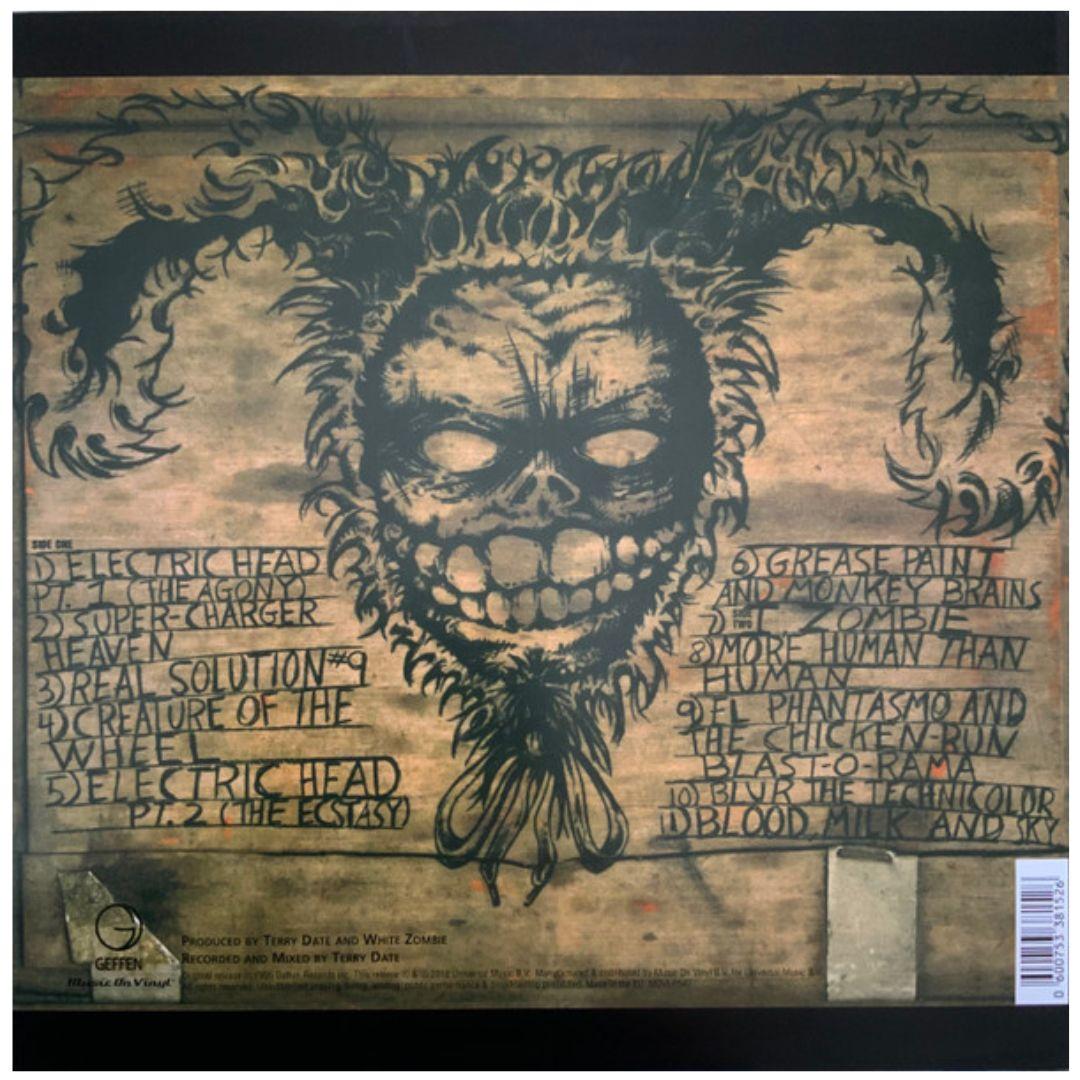 SIDE ONE
1) ELECTRIC HEAD
PT. 1 (THE AGONY)
2) SUPER-CHARGER
HEAVEN
3) REAL SOLUTION #9
4) CREATURE OF THE
WHEEL
5) ELECTRIC HEAD
PT. 2 (THE ECSTASY)
6) GREASE PAINT
AND MONKEY BRAINS
SIDE TWO
7) I ZOMBIE
8) MORE HUMAN THAN
HUMAN
9) EL PHANTASMO AND
THE CHICKEN-RUN
BLAST-O-RAMA
10) BLUR THE TECHNICOLOR
11) BLOOD, MILK AND SKY
GEFFEN
Music On Vinyl
PRODUCED BY TERRY DATE AND WHITE ZOMBIE
RECORDED AND MIXED BY TERRY DATE
0 600753 381526